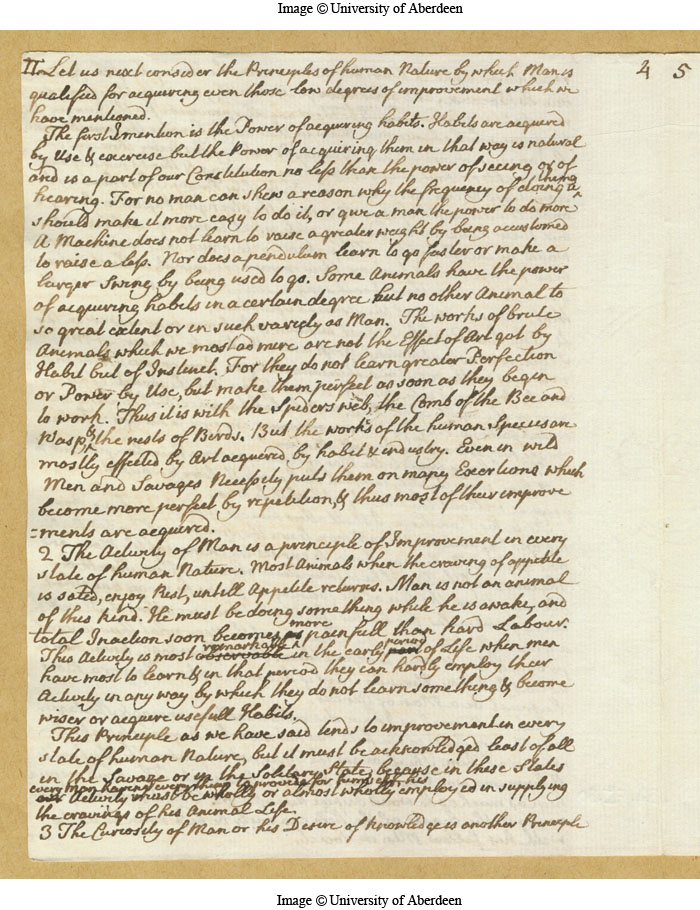 Image © University of Aberdeen
4 5
II. Let us next consider the Principles of human Nature by which Man is
qualified for acquiring even those low degrees of improvement which we
have mentioned.
The first I mention is the Power of acquiring habits. Habits are acquired
by Use & exercise but the Power of acquiring them in that way is natural
and is a part of our Constitution no less than the power of seeing or of
hearing. For no man can shew a reason why the frequency of doing a thing
should make it more easy to do it, or give a man the power to do more
A Machine does not learn to raise a greater weight by being accustomed
to raise a less. Nor does a pendulum learn to go faster or make a
larger Swing by being used to go. Some Animals have the power
of acquiring habits in a certain degree but no other Animal to
so great extent or in such variety as Man. The works of brute
Animals which we most admire are not the Effect of Art got by
Habit but of Instinct. For they do not learn greater Perfection
or Power by Use, but make them perfect as soon as they begin
to work. Thus it is with the Spiders web, the Comb of the Bee and
Wasp, & the nests of Birds. But the works of the human Species are
mostly effected by Art acquired by habit & industry. Even in wild
Men and Savages Necessity puts them on many Exertions which
become more perfect by repetition, & thus most of their improve
=ments are acquired.
2 The Activity of Man is a principle of Improvement in every
state of human Nature. Most Animals when the craving of appetite
is sated, enjoy Rest, untill Appetite returns. Man is not an animal
of this kind. He must be doing some thing while he is awake, and
total Inaction soon becomes more painfull than hard Labour.
This Activity is most observable remarkable in the early part period of Life when men
have most to learn & in that period they can hardly employ their
Activity in any way by which they do not learn something & become
wiser or acquire usefull Habits.
This Principle as we have said tends to improvement in every
state of human Nature, but it must be acknowledged least of all
in the Savage or in the Solitary State, because in these States
every man having every thing to provide for himself his
our Activity must be wholly or almost wholly employed in supplying
the cravings of his Animal Life.
3 The Curiosity of Man or his Desire of knowledge is another Principle
Image © University of Aberdeen